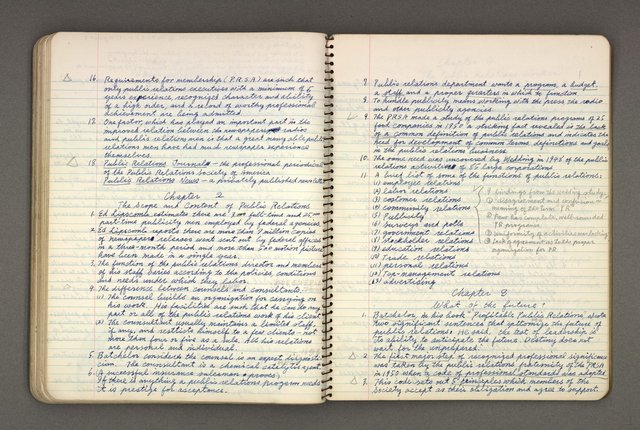 16. Requirements for membership (P.R.S.A.) are such that
only public relations executives with a minimum of 5
years experience, recognized character and ability
of a high order, and a record of worthy professional
achievement are being admitted.
17. One factor, which has played an important part in the
improved relation between the newspapers radios
and public relations men is that a great many able public
relations men have had much newspaper experience
themselves.
18. Public Relations Journal - the professional periodical
of the Public Relations Society of America
Public Relations News - a privately published newsletter
Chapter 2
The Scope and Content of Public Relations
1. Ed Lipscomb estimates there are full-time and
part-time publicity men employed by federal agencies.
2. Ed Lipscomb reports there are more than 7 million copies
of newspaper releases went sent out by federal offices
in a three-month period and more than 500 motion pictures
have been made in a single year.
3. The function of the public relations director and members
of his staff varies according to the policies, conditions
and needs under which they labor.
4. The difference between counsels and consultants.
(1) The counsel builds an organization for carrying on
his work. His facilities are such that he can do any
part or all of the public relations work of his client.
(2) The counsultant usually maintains a limited staff,
if any, and restricts himself to a few clients - not
more than four or five as a rule. All his relations
are personal and individual.
5. Batchelor considers the counsel is an expert diagnosti-
cian. The consultant is a chemical catalytic agent.
6. (A successful insurance salesman approves)
If there is anything a public relations program needs
it is prestige for acceptance.
7. Public relations department wants a program, a budget,
a staff, and a proper quarters in which to function
8. To handle publicity means working with the press the radio
and other publicity agencies.
9. The PRSA made a study of the public relations programs of 25
food companies in 1950 a shocking fact revealed is the lack
of a common definition of public relations and indicates the
need for development of common terms, definitions and goals
in the public relations business.
10. The same need was uncovered by Wedding in 1948 of the public
relations activities of 85 large corporations
11. A brief list of some of the functions of public relations:
(1) employee relations
(2) Labor relations
(3) customer relations
(4) community relations
(5) Publicity
(6) Surveys and polls
(7) government relations
(8) Stockholder relations
(9) education relations
(10) Trade relations
(11) personal relations
(12) Top-management relations
(13) advertising
4 findings from the wedding study:
① disagreement and confusion in
meaning of the term "PR"
② Few has complete, well-rounded
PR programs
③ uniformity of activities is lacking
④ Lack agreement as to the proper
organization for PR.
Chapter 8
What of the future?
1. Batchelor, in his book "Profitable Public Relations" wrote
two significant sentences that epitomize the future of
public relations. He said, "The test of leadership is
its ability to anticipate the future. Destiny does not
wait for the unprepared."
2. The first major step of recognized professional significance
was taken by the public relations fraternity of the PRSA
in 1950 when a code of professional standards was adopted.
3. This code sets out 5 principles which members of the
Society accept as their obligation and agree to support.